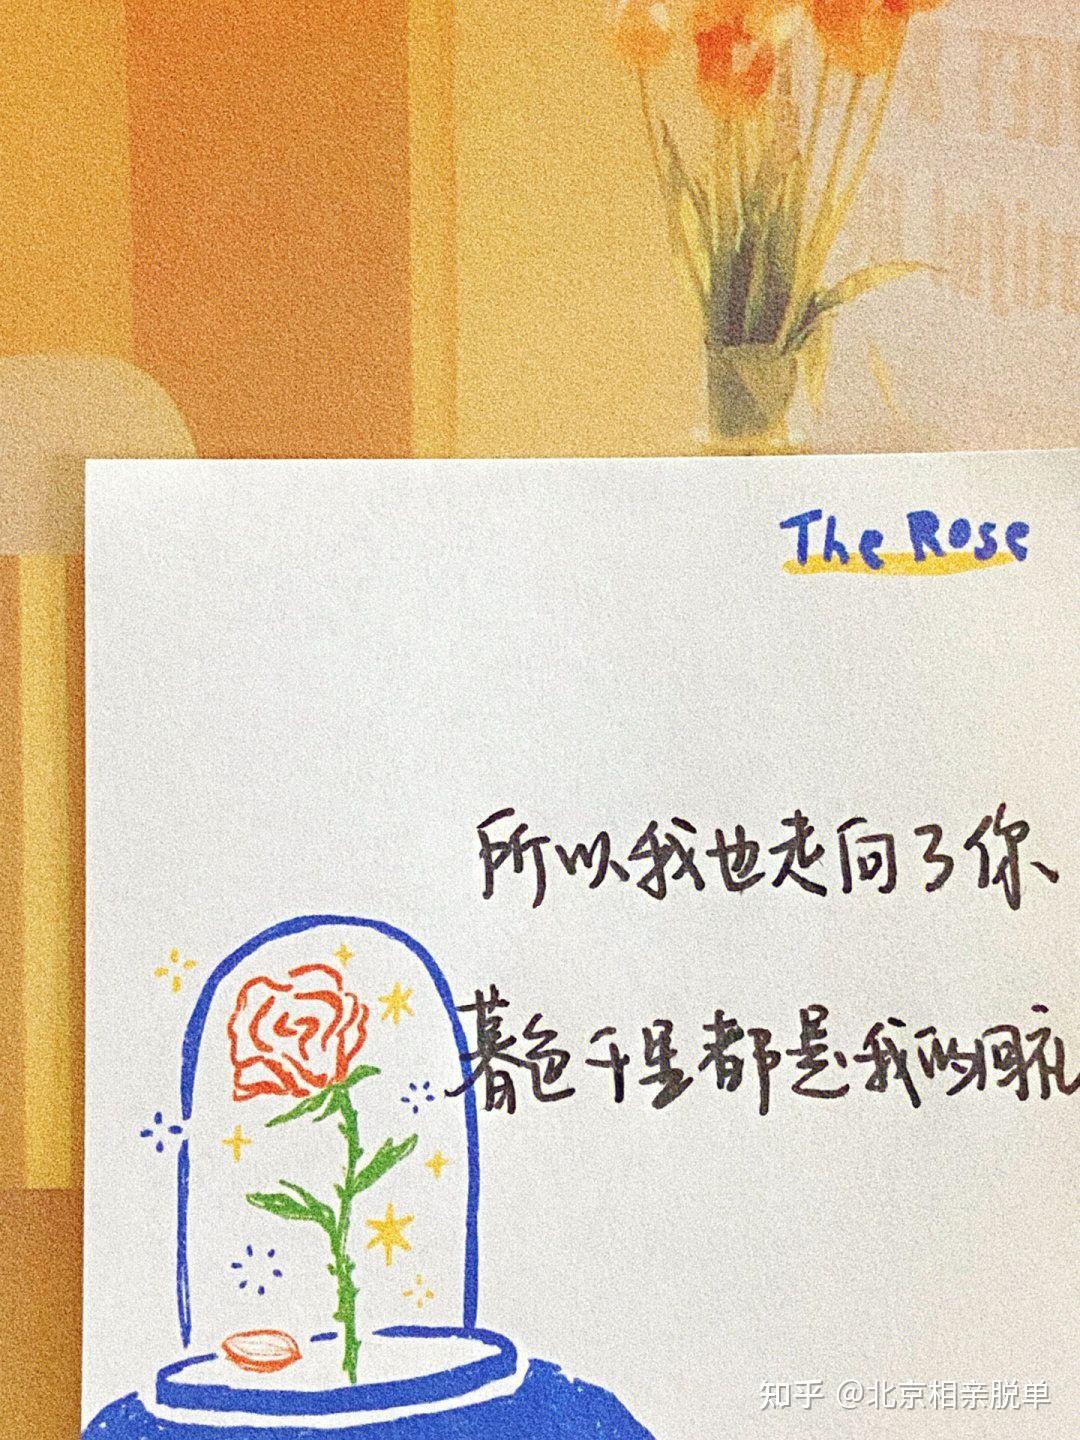 The Rose
所以我也走向了你、
暮色千里都是我的回礼
知乎 @北京相亲脱单